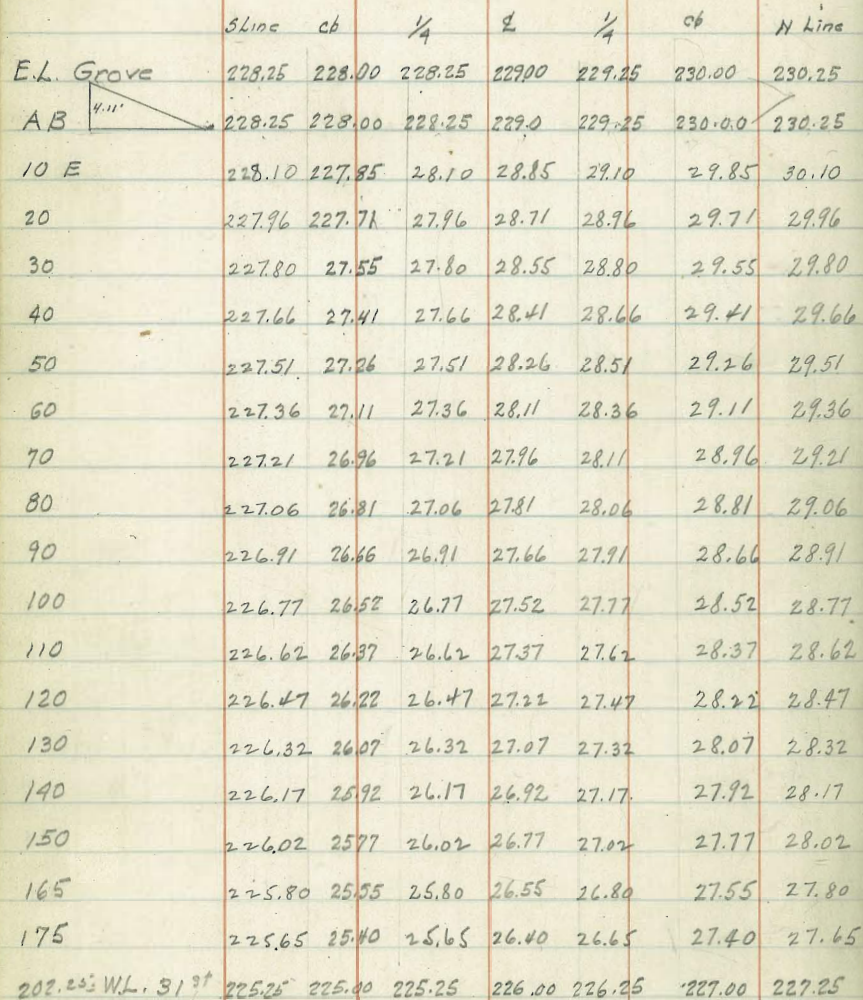 S Line cb 1/4 ℄ 1/4 cb N Line
E.L. Grove 228.25 228.00 228.25 229.00 229.25 230.00 230.25
4.11'
AB 228.25 228.00 228.25 229.0 229.25 230.00 230.25
10 E 228.10 227.85 28.10 28.85 29.10 29.85 30.10
20 227.96 227.71 27.96 28.71 28.96 29.71 29.96
30 227.80 27.55 27.80 28.55 28.80 29.55 29.80
40 227.66 27.41 27.66 28.41 28.66 29.41 29.66
50 227.51 27.26 27.51 28.26 28.51 29.26 29.51
60 227.36 27.11 27.36 28.11 28.36 29.11 29.36
70 227.21 26.96 27.21 27.96 28.11 28.96 29.21
80 227.06 26.81 27.06 27.81 28.06 28.81 29.06
90 226.91 26.66 26.91 27.66 27.91 28.66 28.91
100 226.77 26.52 26.77 27.52 27.77 28.52 28.77
110 226.62 26.37 26.62 27.37 27.62 28.37 28.62
120 226.47 26.22 26.47 27.22 27.47 28.22 28.47
130 226.32 26.07 26.32 27.07 27.32 28.07 28.32
140 226.17 25.92 26.17 26.92 27.17 27.92 28.17
150 226.02 25.77 26.02 26.77 27.02 27.77 28.02
165 225.80 25.55 25.80 26.55 26.80 27.55 27.80
175 225.65 25.40 25.65 26.40 26.65 27.40 27.65
202.25 W.L. 31st 225.25 225.00 225.25 226.00 226.25 227.00 227.25